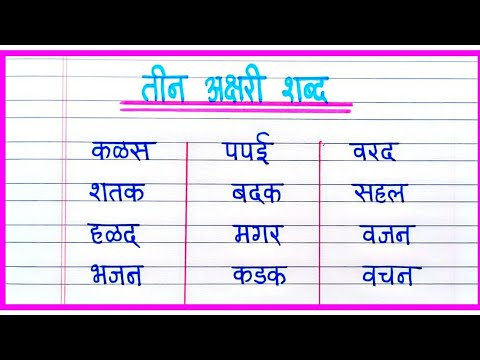 तीन अक्षरी शब्द
कळस पपई वरद
शतक बदक सहल
हळद् मगर वजन
भजन कडक वचन